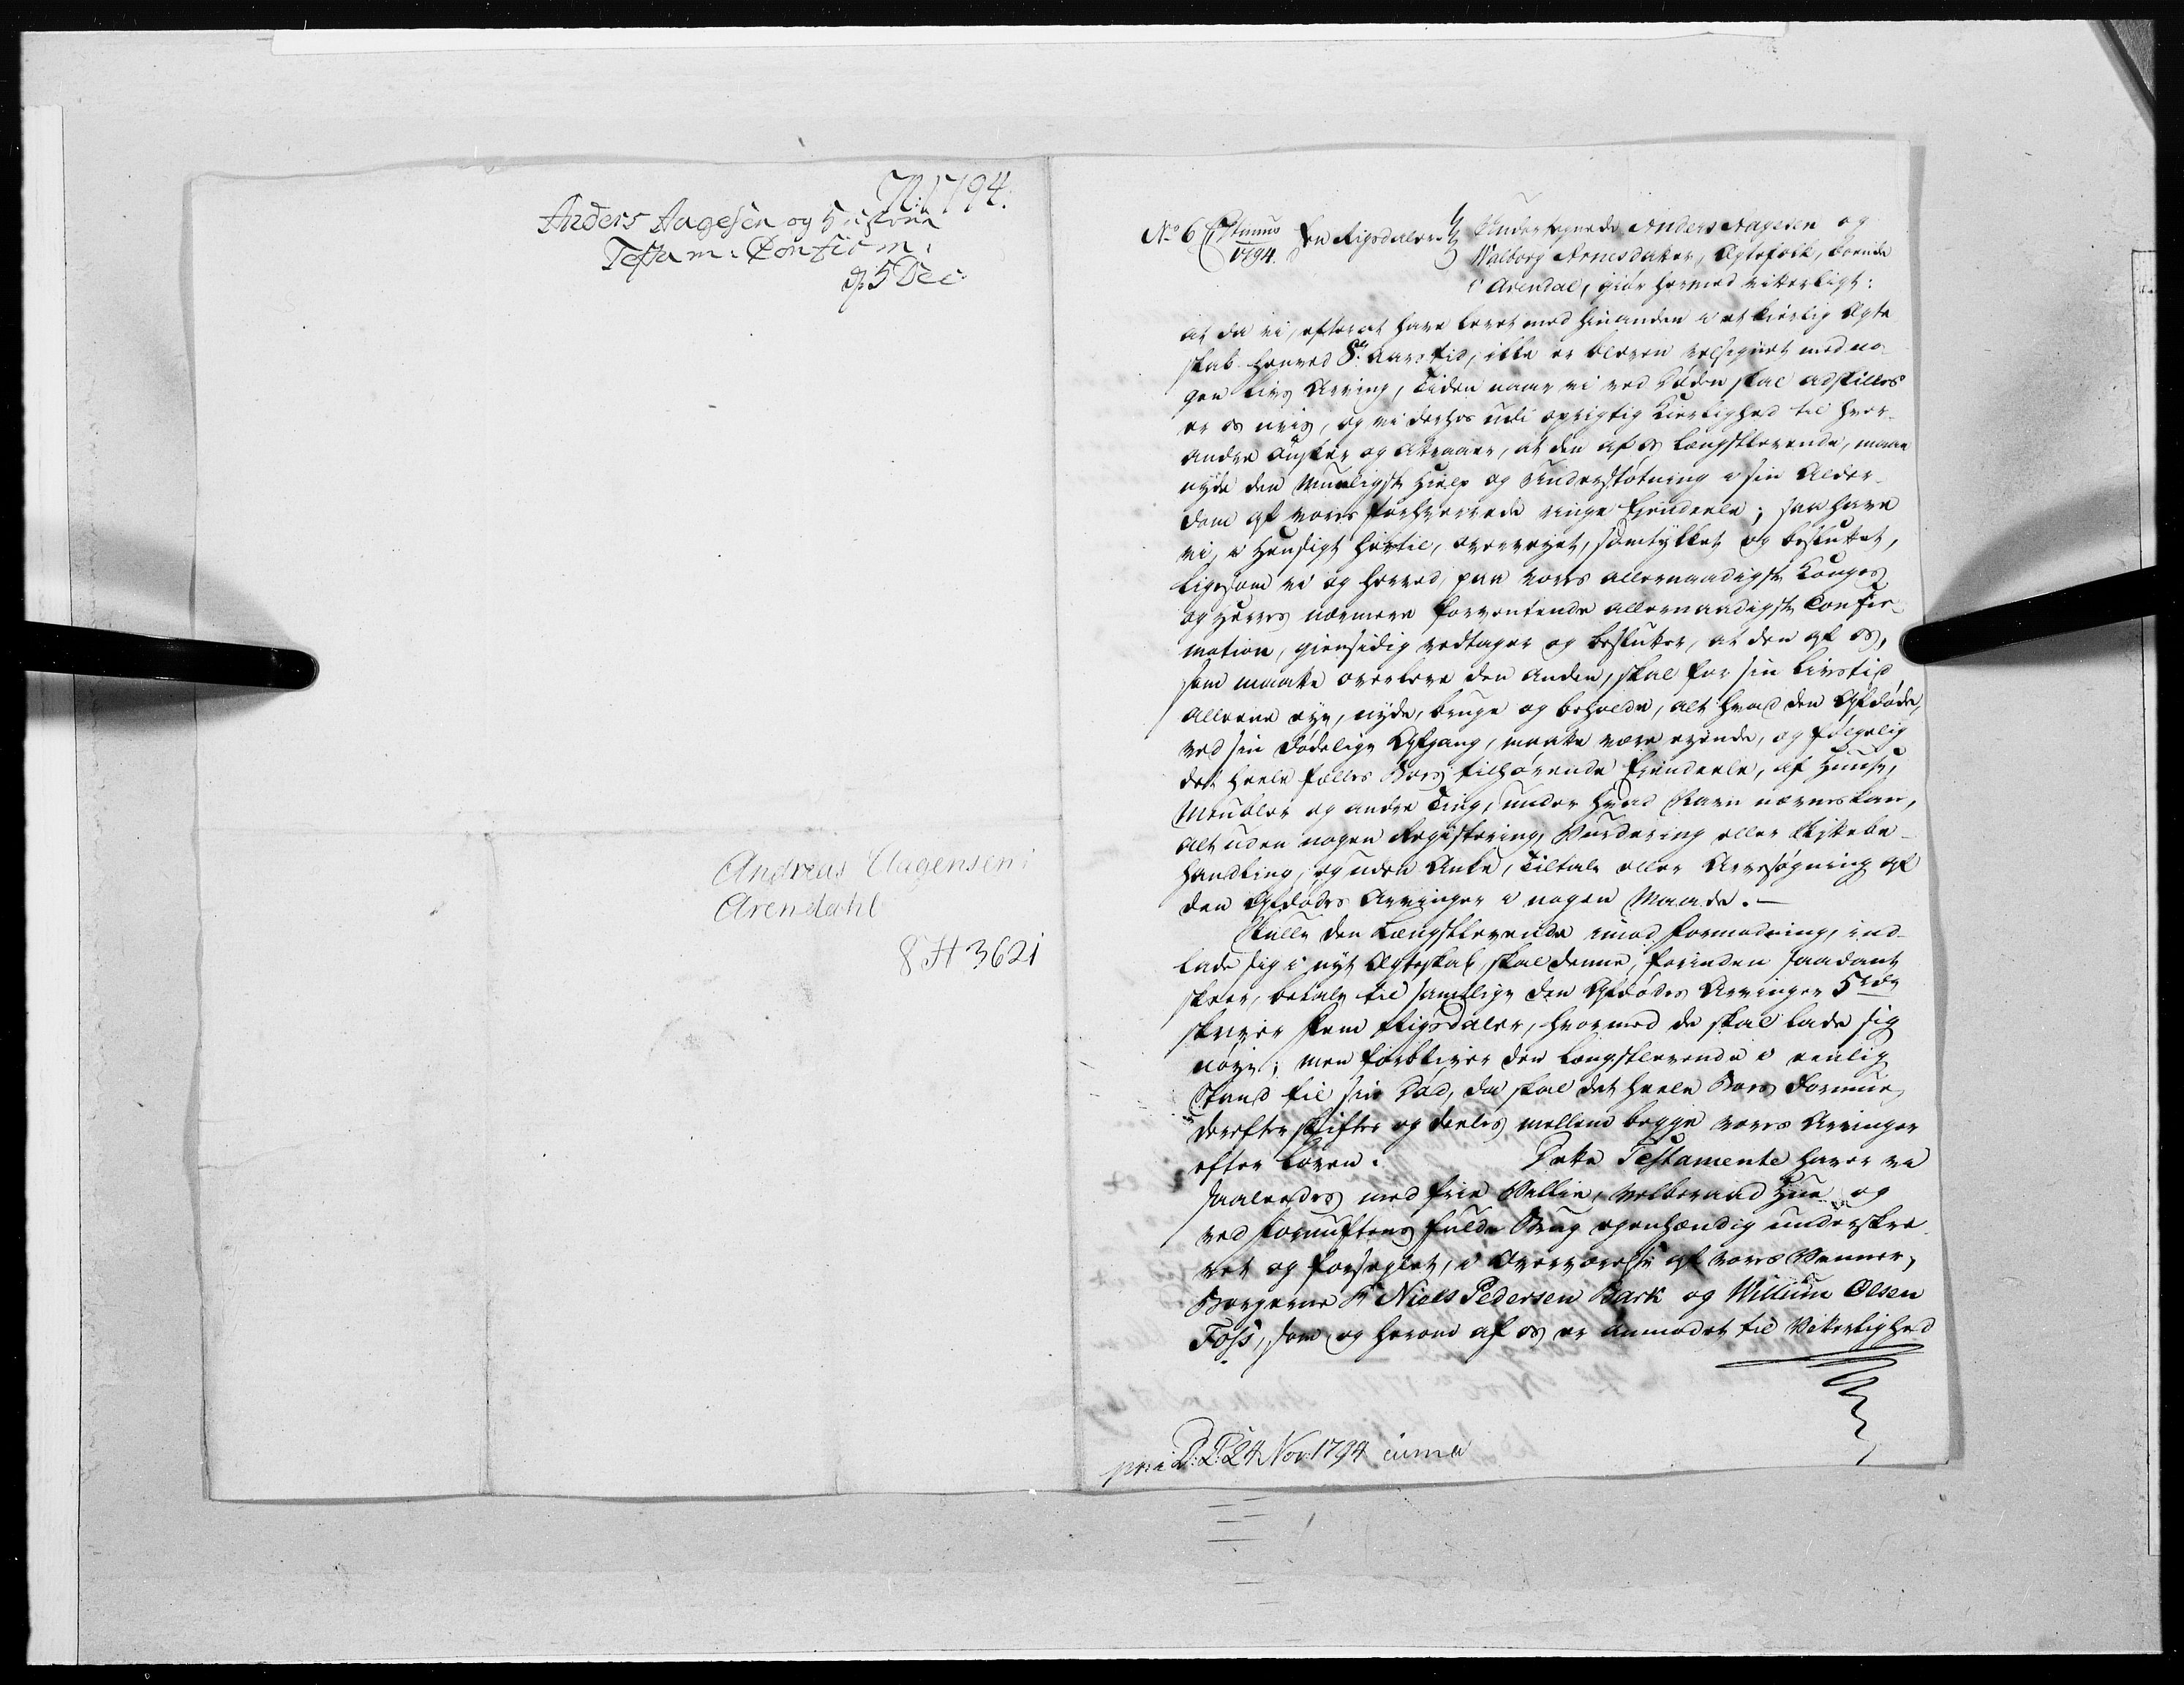 N: 1794.
Anders Aagesen og Hustrue
Testam: Confirm:
d. 5 Dec:
Andreas Aagensen i
Arendahl
8 H 3621
No 6 1794. En Rigsdaler
Undertegnede Anders Aagesen og
Walborg Arnesdatter, Ægtefolk, boende
i Arendal, giør hermed vitterligt:
at da vi, efter at have levet med hinanden i et kierlig Ægte
skab henved 8te Aars tid, ikke er bleven velsignet med no-
gen livs Arving, Tiden naar vi ved Døden skal adskilles
er os uvis, og vi derhos udi oprigtig Kierlighed til hver-
andre ønsker og attraaer, at den af os længstlevende, maae
nyde den muuligste Hielp og Understøtning i sin Alder-
dom af vores forhvervede ringe Ejendeele; saa have
vi, i Hensigt hertil, overvejet, samtykket og besluttet,
ligesom vi og herved, paa vores allernaadigste Konges
og Herres nærmere forventende allernaadigste Confir-
mation, giensidig vedtager og beslutter, at den af os,
som maatte overleve den anden, skal for sin Livstid
alleene eye, nyde, bruge og beholde, alt hvad den Afdøde,
ved sin dødelige Afgang, maatte være eyende, og følgelig
det heele fælles Boes tilhørende Ejendeele, af Huuse,
Meubler og andre Ting, under hvad Navn nævnes kan,
alt uden nogen Registering, Vurdering eller Skiftebe-
handling, og uden Anke, Tiltale eller Arvesøgning af
den Afdødes Arvinger i nogen Maade. -
Skulle den Længstlevende imod formodning, ind-
lade sig i nyt Ægteskab, skal denne, forinden saadant
skeer, betale til samtlige den Afdødes Arvinger 5 rdr
skriver fem Rigsdaler, hvormed de skal lade sig
nøye; men forbliver den længstlevende i eenlig
Stand til sin Død, da skal det heele Boes Formue,
derefter skiftes og deeles mellem begge vores Arvinger
efter Loven. Dette Testamente haver vi
saaledes med frie Villie, velberaad Hue og
ved Fornuftens fulde Brug egenhændig underskre-
vet og forseglet, i Overværelse af vores Venner,
Borgerne Sr Niels Pedersen Bark og Willum Olsen
Foss, som og herom af os er anmodet til Vitterlighed
pr: i D: C: 24 Nov: 1794